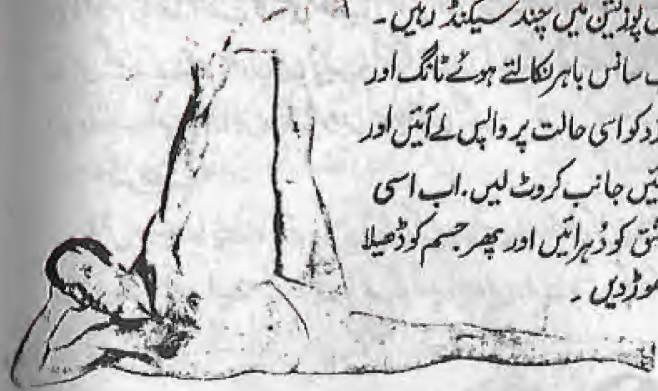 پوزیشن میں چند سیکنڈ رہیں۔
سانس باہر نکالتے ہوئے ٹانگ اور
کو اسی حالت پر واپس لے آئیں اور
جانب کروٹ لیں. اب اسی
کو دُہرائیں اور پھر جسم کو ڈھیلا